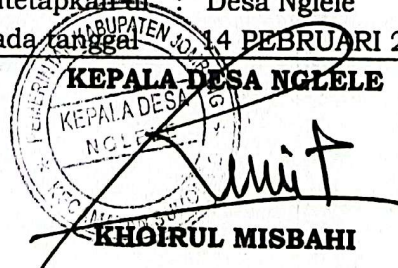 tetapkan di : Desa Nglele
ada tanggal 14 PEBRUARI 2
KEPALA DESA NGLELE
PEMERINTAH KABUPATEN JOMBANG
KEPALA DESA
NGLELE
KECAMATAN SUMO
KHOIRUL MISBAHI